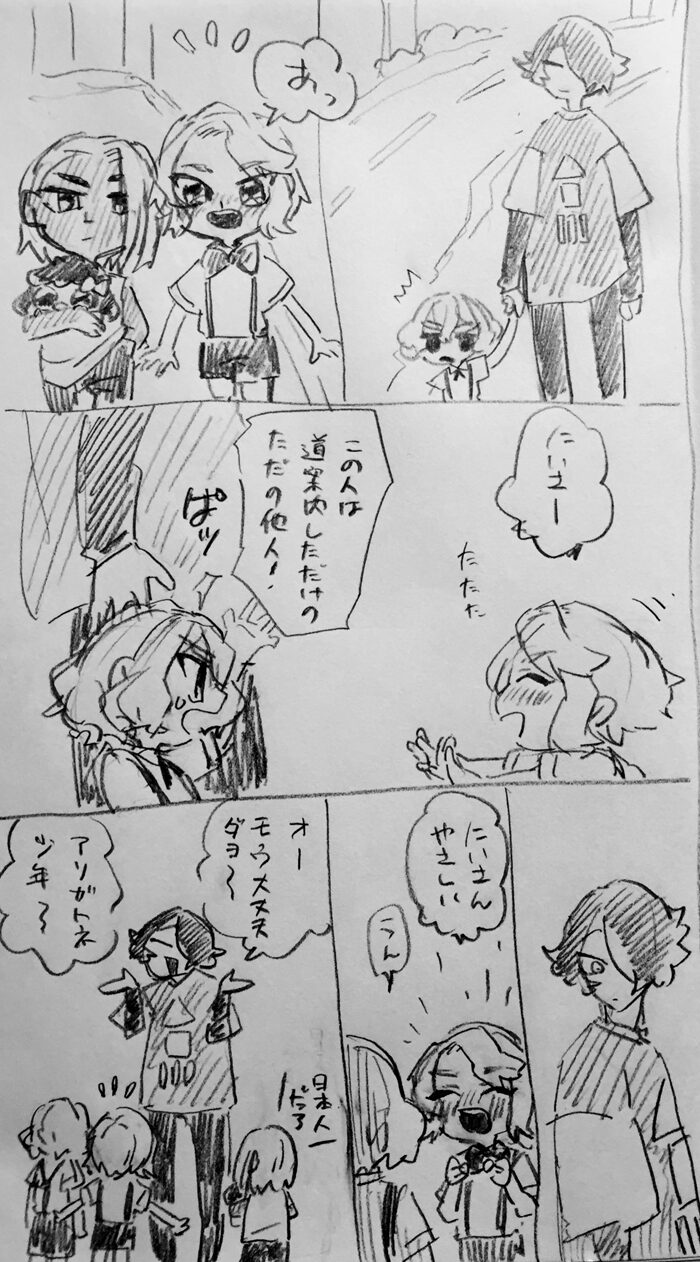 あっ
にいさー
たたた
この人は
道案内しただけの
ただの他人!
ぱッ
にいさん
やさしい
うん
オー
モウ大丈夫
ダヨ〜
アリガトネ
少年〜
日本人
だろ